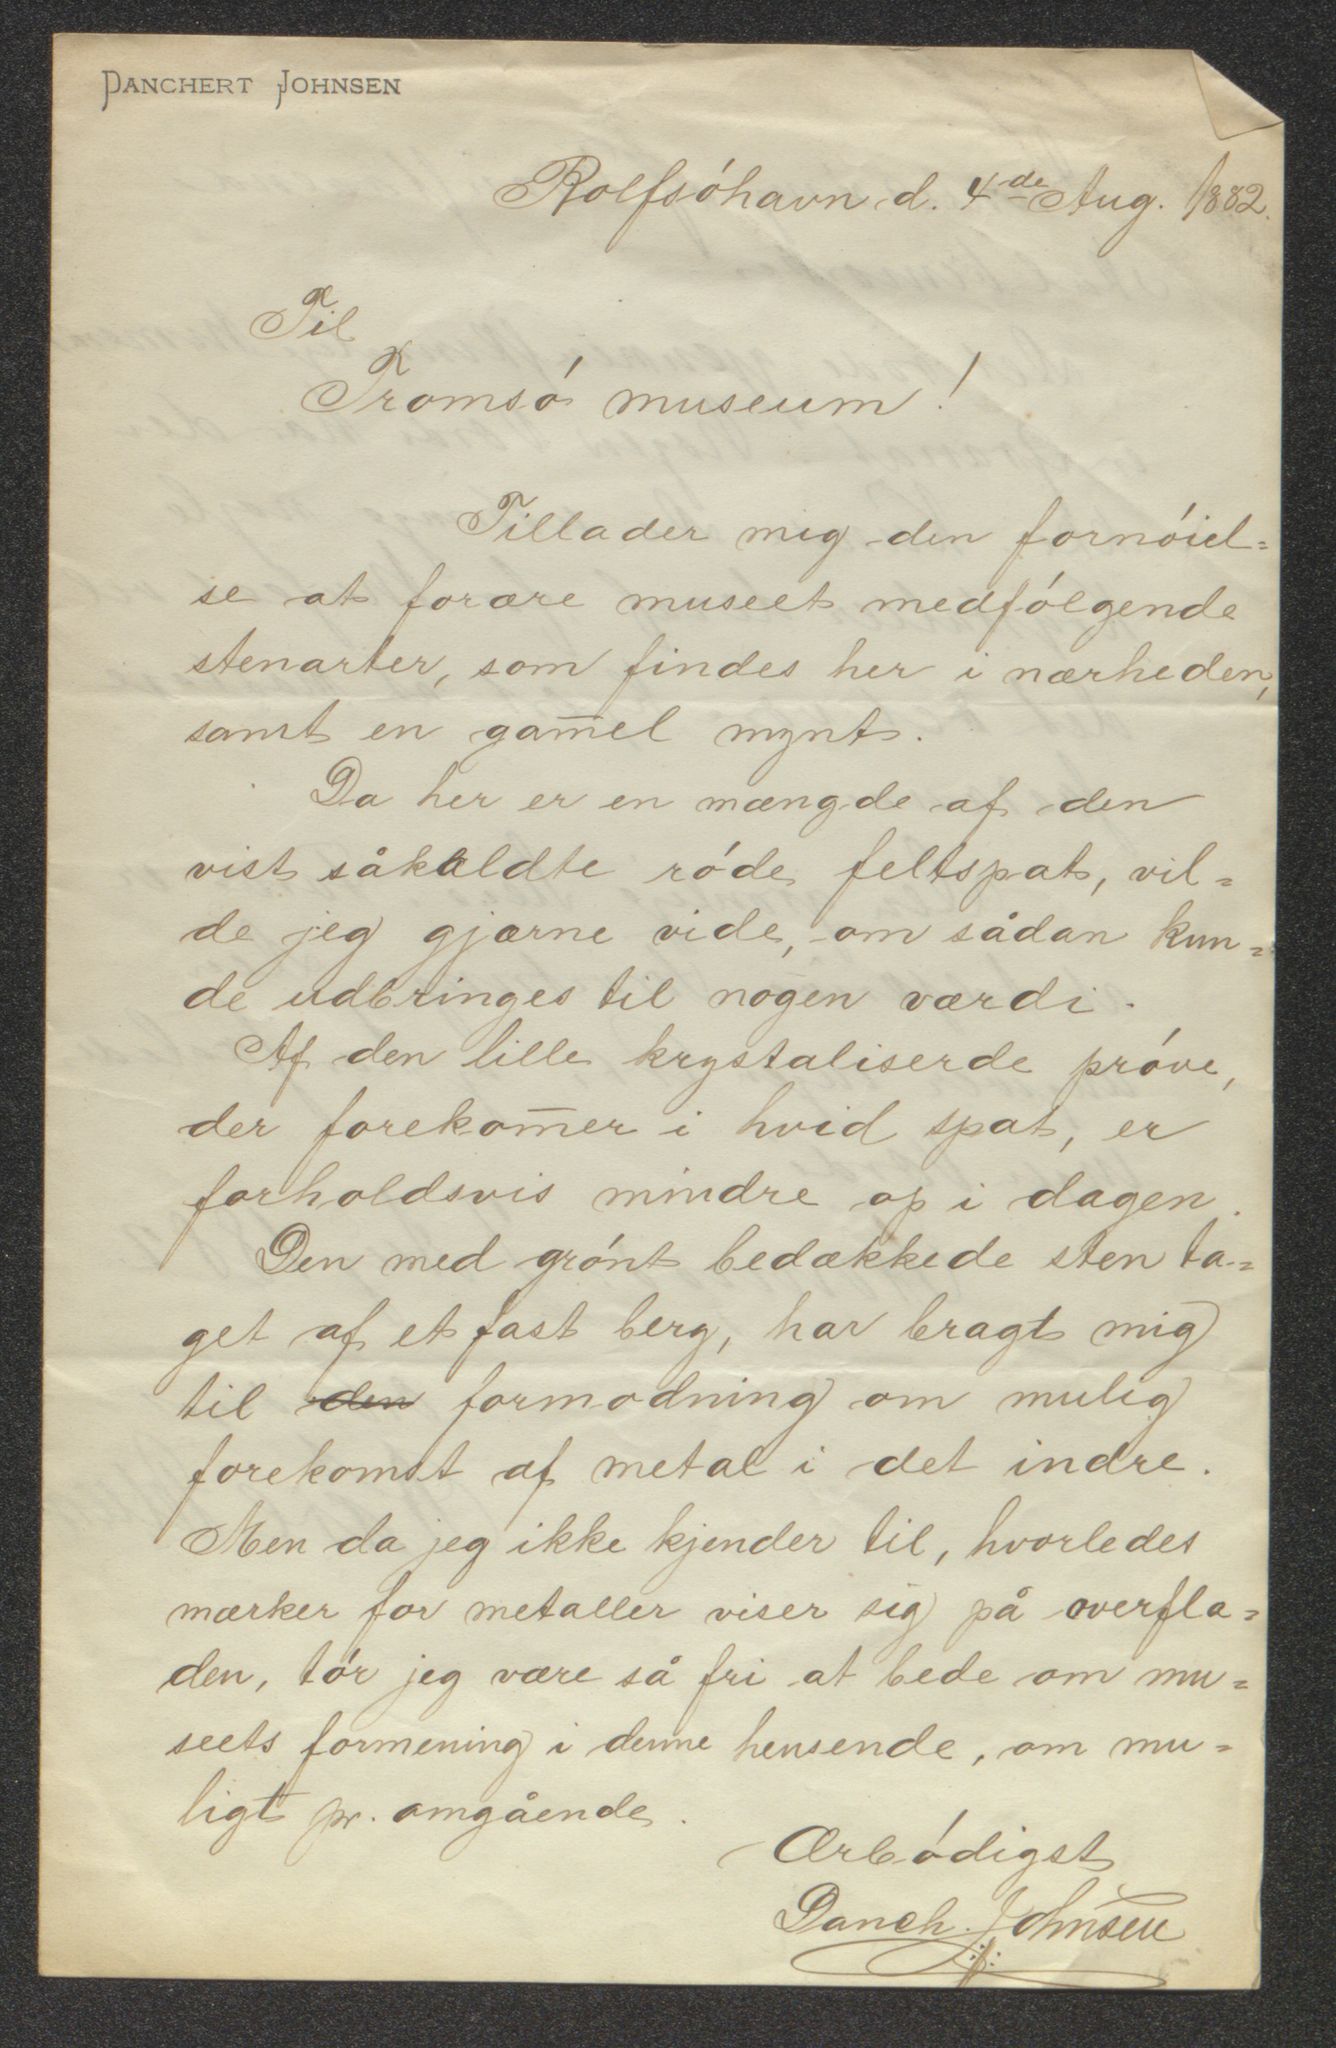 DANCHERT JOHNSEN
Rolfsóhavn d. 4de Aug. 1882.
Til
Tromsó museum!
Tillader mig den fornóiel=
se at forære museet medfólgende
stenarter, som findes her i nærheden,
samt en gam̅el mynt.
Da her er en mængde af den
vist såkaldte róde feltspat, vil=
de jeg gjærne vide, om sådan kun=
de udbringes til nogen værdi.
Af den lille krystaliserde próve,
der forekom̅er i hvid spat, er
forholdsvis mindre op i dagen.
Den med grónt bedækkede sten ta=
get af et fast berg, har bragt mig
til den formodning om mulig
forekomst af metal i det indre.
Men da jeg ikke kjender til, hvorledes
mærker for metaller viser sig på overfla=
den, tór jeg være så fri at bede om mu=
seets formening i denne hensende, om mu=
ligt pr. omgående.
Ærbódigst
Danch. Johnsen